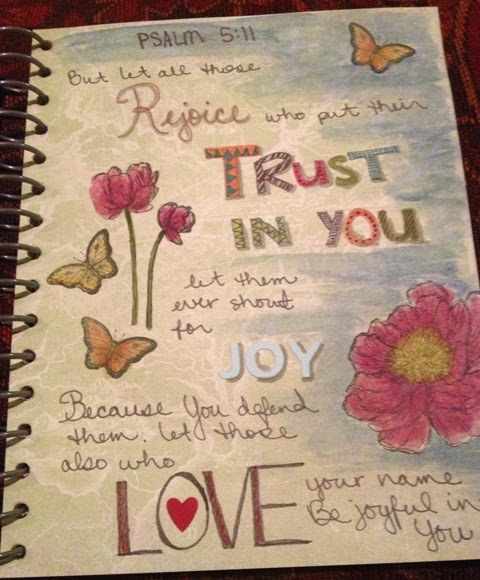 PSALM 5:11
But let all those
Rejoice who put their
TRUST
IN YOU
let them
ever shout
for
JOY
Because You defend
them. let those
also who
LOVE your name
Be joyful in
You